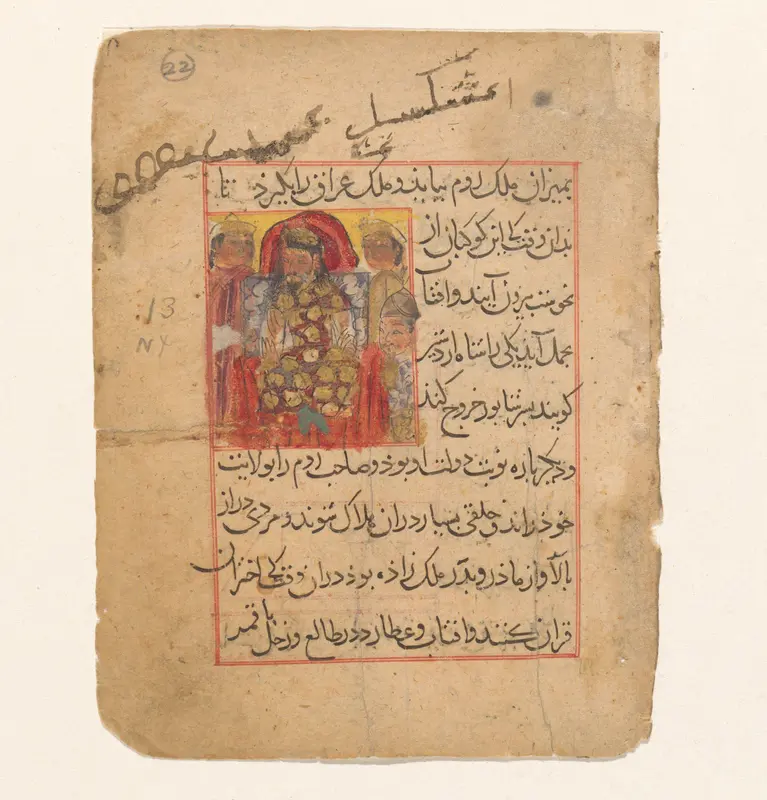 22
بمیزان ملک روم بیاید و ملک عراق را بگیرد تا
بدان وقت کی این کوکبان از
نحوست بیرون آیند و آفتاب
بحمل آید یکی را شاه اردشیر
کویند بسر شابور خروج کند
و دیکر باره نوبت دولت او بوذ و صاحب روم را بولایت
خوذ راند و خلقی بسیار دران هلاک شوند و مردی دراز
بالا و از ماذر و بدر ملک زاده بوذ دران وقت کی اختران
قران کنند و آفتاب و عطارد در طالع و زحل با قمر
13
NY